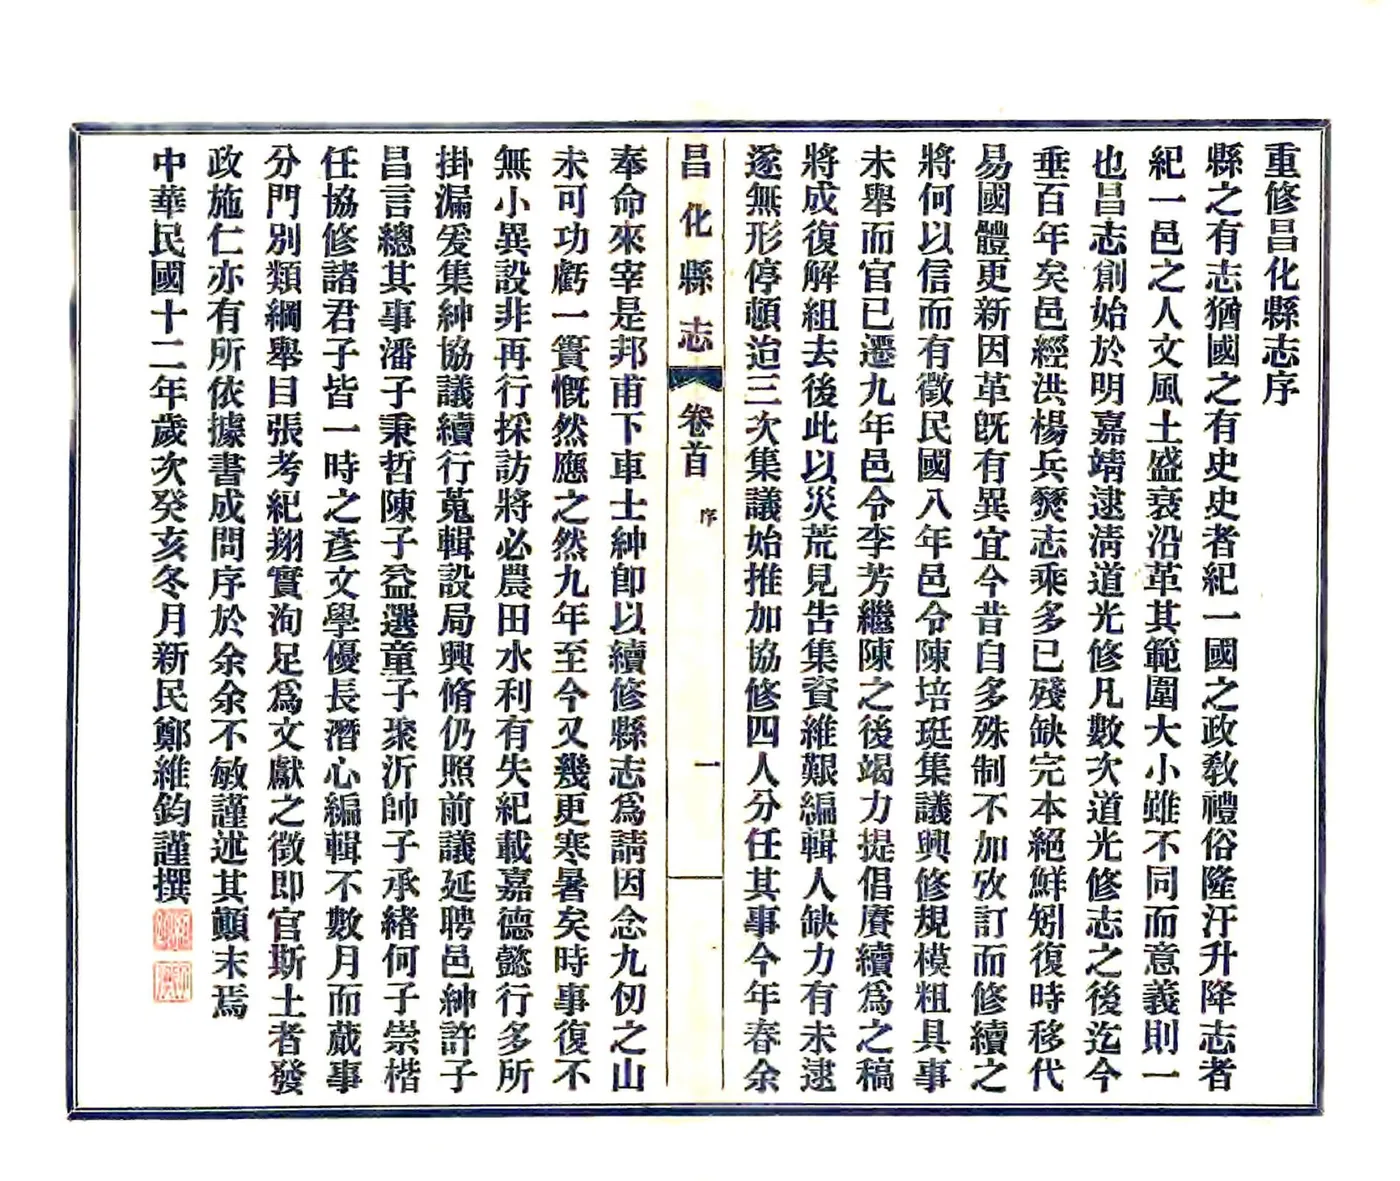 重修昌化縣志序
縣之有志猶國之有史史者紀一國之政敎禮俗隆汙升降志者
紀一邑之人文風土盛衰沿革其範圍大小雖不同而意義則一
也昌志創始於明嘉靖逮淸道光修凡數次道光修志之後迄今
垂百年矣邑經洪楊兵燹志乘多已殘缺完本絕鮮矧復時移代
易國體更新因革旣有異宜今昔自多殊制不加攷訂而修續之
將何以信而有徵民國八年邑令陳培珽集議興修規模粗具事
未舉而官已遷九年邑令李芳繼陳之後竭力提倡賡續爲之稿
將成復解組去後此以災荒見告集資維艱編輯人缺力有未逮
遂無形停頓迨三次集議始推加協修四人分任其事今年春余
昌化縣志
卷首
序
一
奉命來宰是邦甫下車士紳卽以續修縣志爲請因念九仞之山
未可功虧一簣慨然應之然九年至今又幾更寒暑矣時事復不
無小異設非再行採訪將必農田水利有失紀載嘉德懿行多所
掛漏爰集紳協議續行蒐輯設局興脩仍照前議延聘邑紳許子
昌言總其事潘子秉哲陳子益選童子聚沂帥子承緒何子崇楷
任協修諸君子皆一時之彥文學優長潛心編輯不數月而蕆事
分門別類綱舉目張考紀翔實洵足爲文獻之徵即官斯土者發
政施仁亦有所依據書成問序於余余不敏謹述其顚末焉
中華民國十二年歲次癸亥冬月新民鄭維鈞謹撰